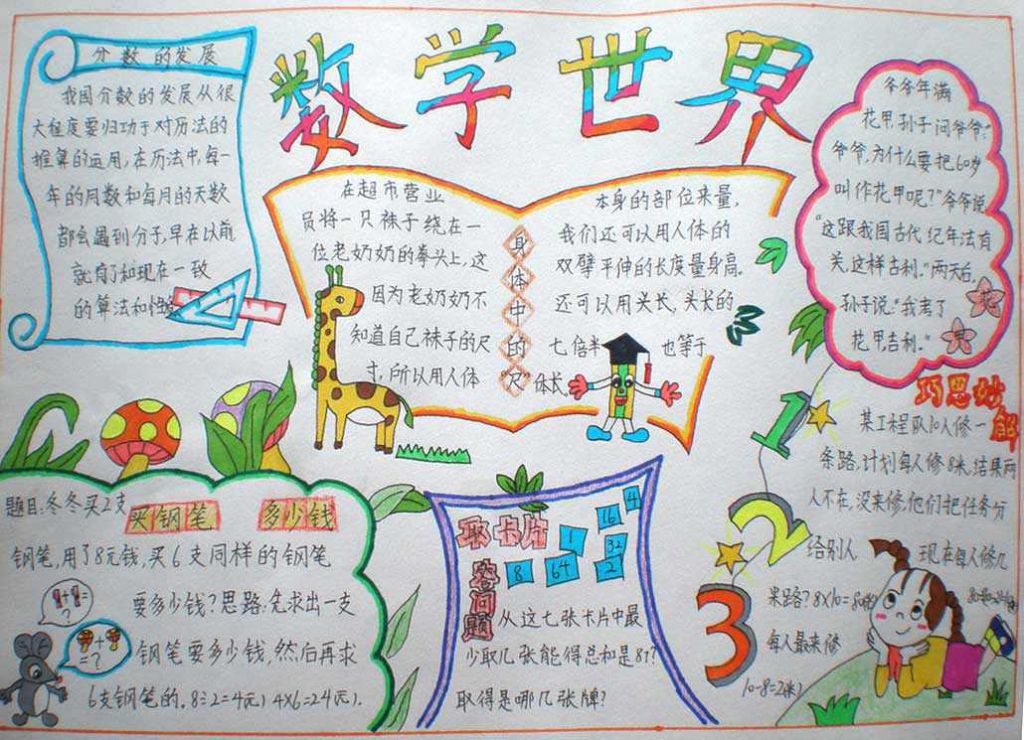 数学世界
分数的发展
我国分数的发展从很
大程度要归功于对历法的
推算的运用,在历法中,每一
年的月数和每月的天数
都会遇到分子,早在以前
就有了和现在一致
的算法和
在超市营业
员将一只袜子绕在一
位老奶奶的拳头上,这
因为老奶奶不
知道自己袜子的尺
寸,所以用人体
身体中的“尺”
本身的部位来量,
我们还可以用人体的
双臂平伸的长度量身高。
还可以用头长,头长的
七倍半 也等于
体长。
爷爷年满
花甲,孙子问爷爷:“
爷爷,为什么要把60岁
叫作花甲呢?”爷爷说
“这跟我国古代纪年法有
关,这样吉利。”两天后,
孙子说:“我考了
花甲,吉利。”
巧思妙解
某工程队10人修一
条路,计划每人修8米,结果两
人不在,没来修,他们把任务分
给别人 现在每人修几
米路?8×10=80(米)
每人最来修
10-8=2(米)
1
2
3
题目:冬冬买2支
买钢笔 多少钱
钢笔,用了8元钱,买6支同样的钢笔
要多少钱?思路:先求出一支
钢笔要多少钱,然后再求
6支钢笔的。8÷2=4(元) 4×6=24(元).
+ =
?
+
=?
取卡片
1 16 4
8 64 32 2
答问题
从这七张卡片中最
少取几张能得总和是87?
取得是哪几张牌?